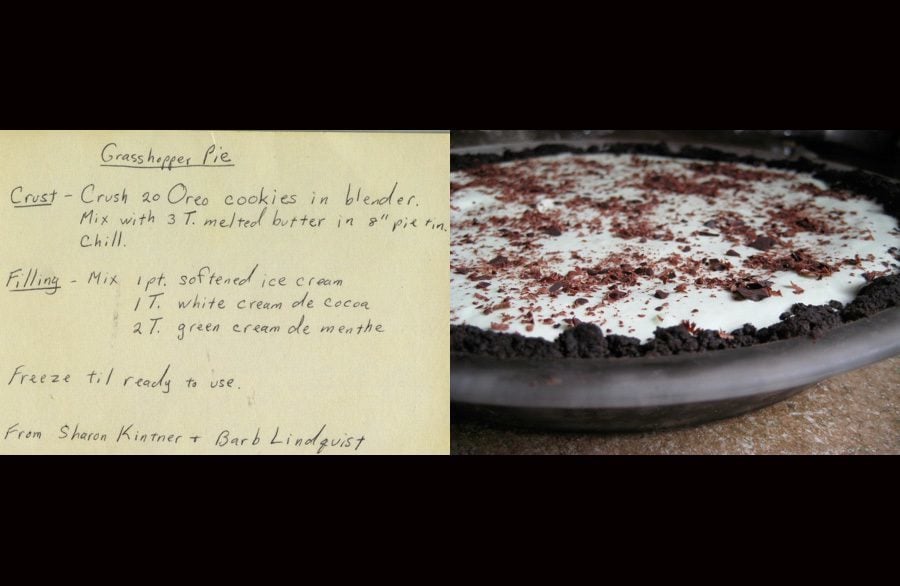 Grasshopper Pie
Crust - Crush 20 Oreo cookies in blender.
Mix with 3 T. melted butter in 8" pie tin.
Chill.
Filling - Mix 1 pt. softened ice cream
1 T. white cream de cocoa
2 T. green cream de menthe
Freeze til ready to use.
From Sharon Kintner + Barb Lindquist